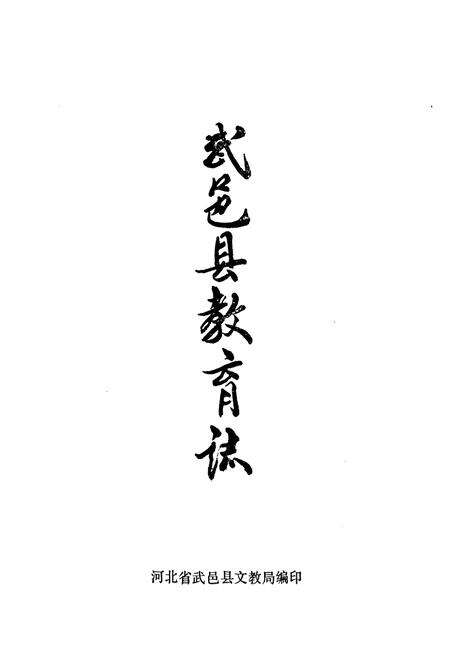 武邑县教育誌
河北省武邑县文教局编印